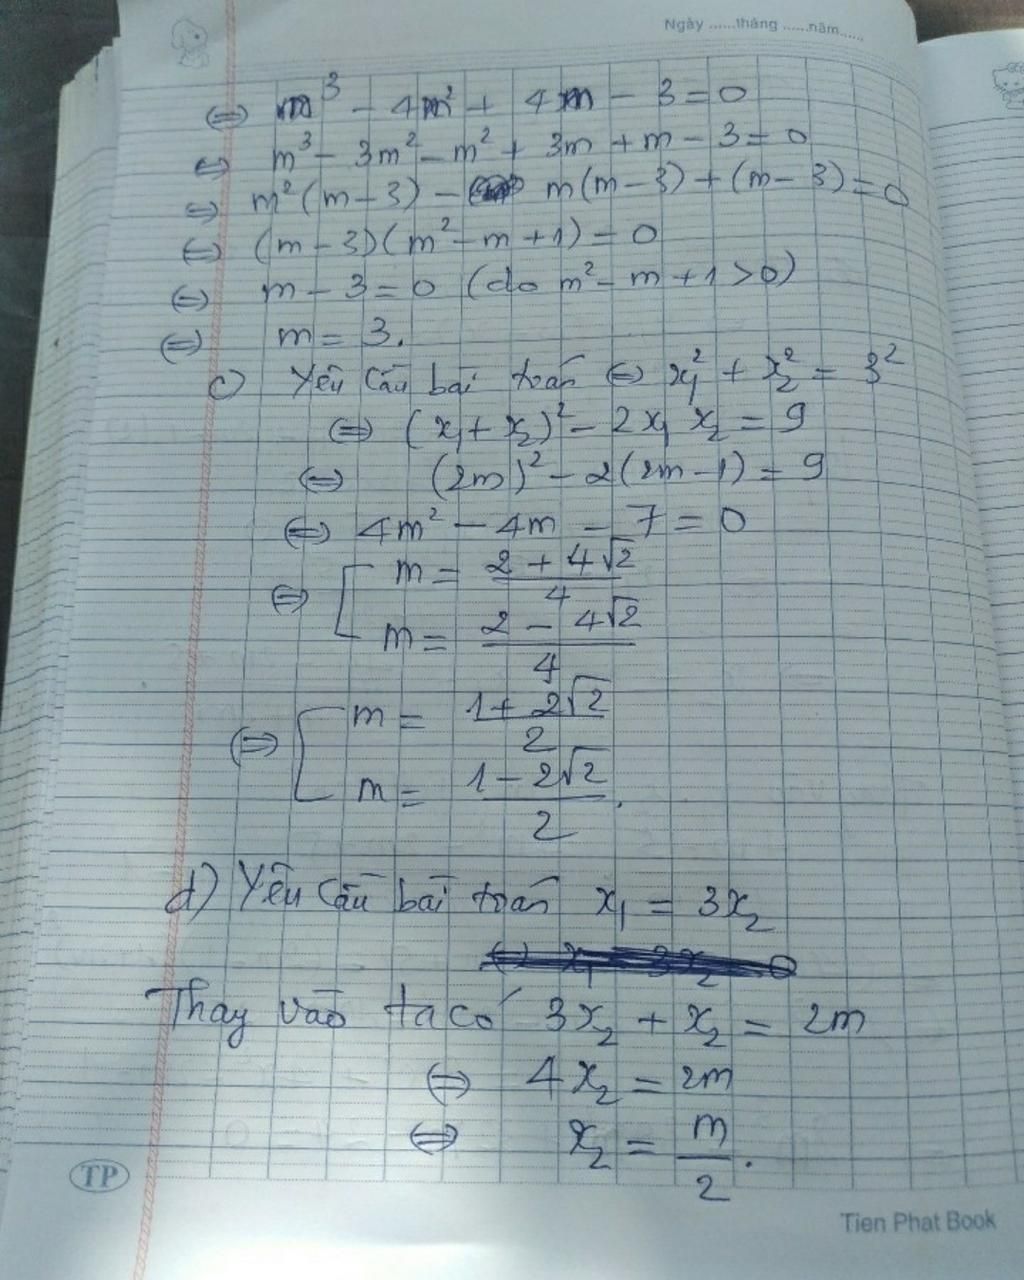 Ngày ......tháng ......năm......
⇔ m³ - 4m² + 4m - 3 = 0
⇔ m³ - 3m² - m² + 3m + m - 3 = 0
⇔ m²(m - 3) - m(m - 3) + (m - 3) = 0
⇔ (m - 3)(m² - m + 1) = 0
⇔ m - 3 = 0 (do m² - m + 1 > 0)
⇔ m = 3.
c) Yêu cầu bài toán ⇔ x₁² + x₂² = 3²
⇔ (x₁ + x₂)² - 2x₁x₂ = 9
⇔ (2m)² - 2(2m - 1) = 9
⇔ 4m² - 4m - 7 = 0
⇔ [ m = (2 + 4√2)/4
m = (2 - 4√2)/4
⇔ [ m = (1 + 2√2)/2
m = (1 - 2√2)/2.
d) Yêu cầu bài toán x₁ = 3x₂
Thay vào ta có 3x₂ + x₂ = 2m
⇔ 4x₂ = 2m
⇔ x₂ = m/2.
TP
Tien Phat Book